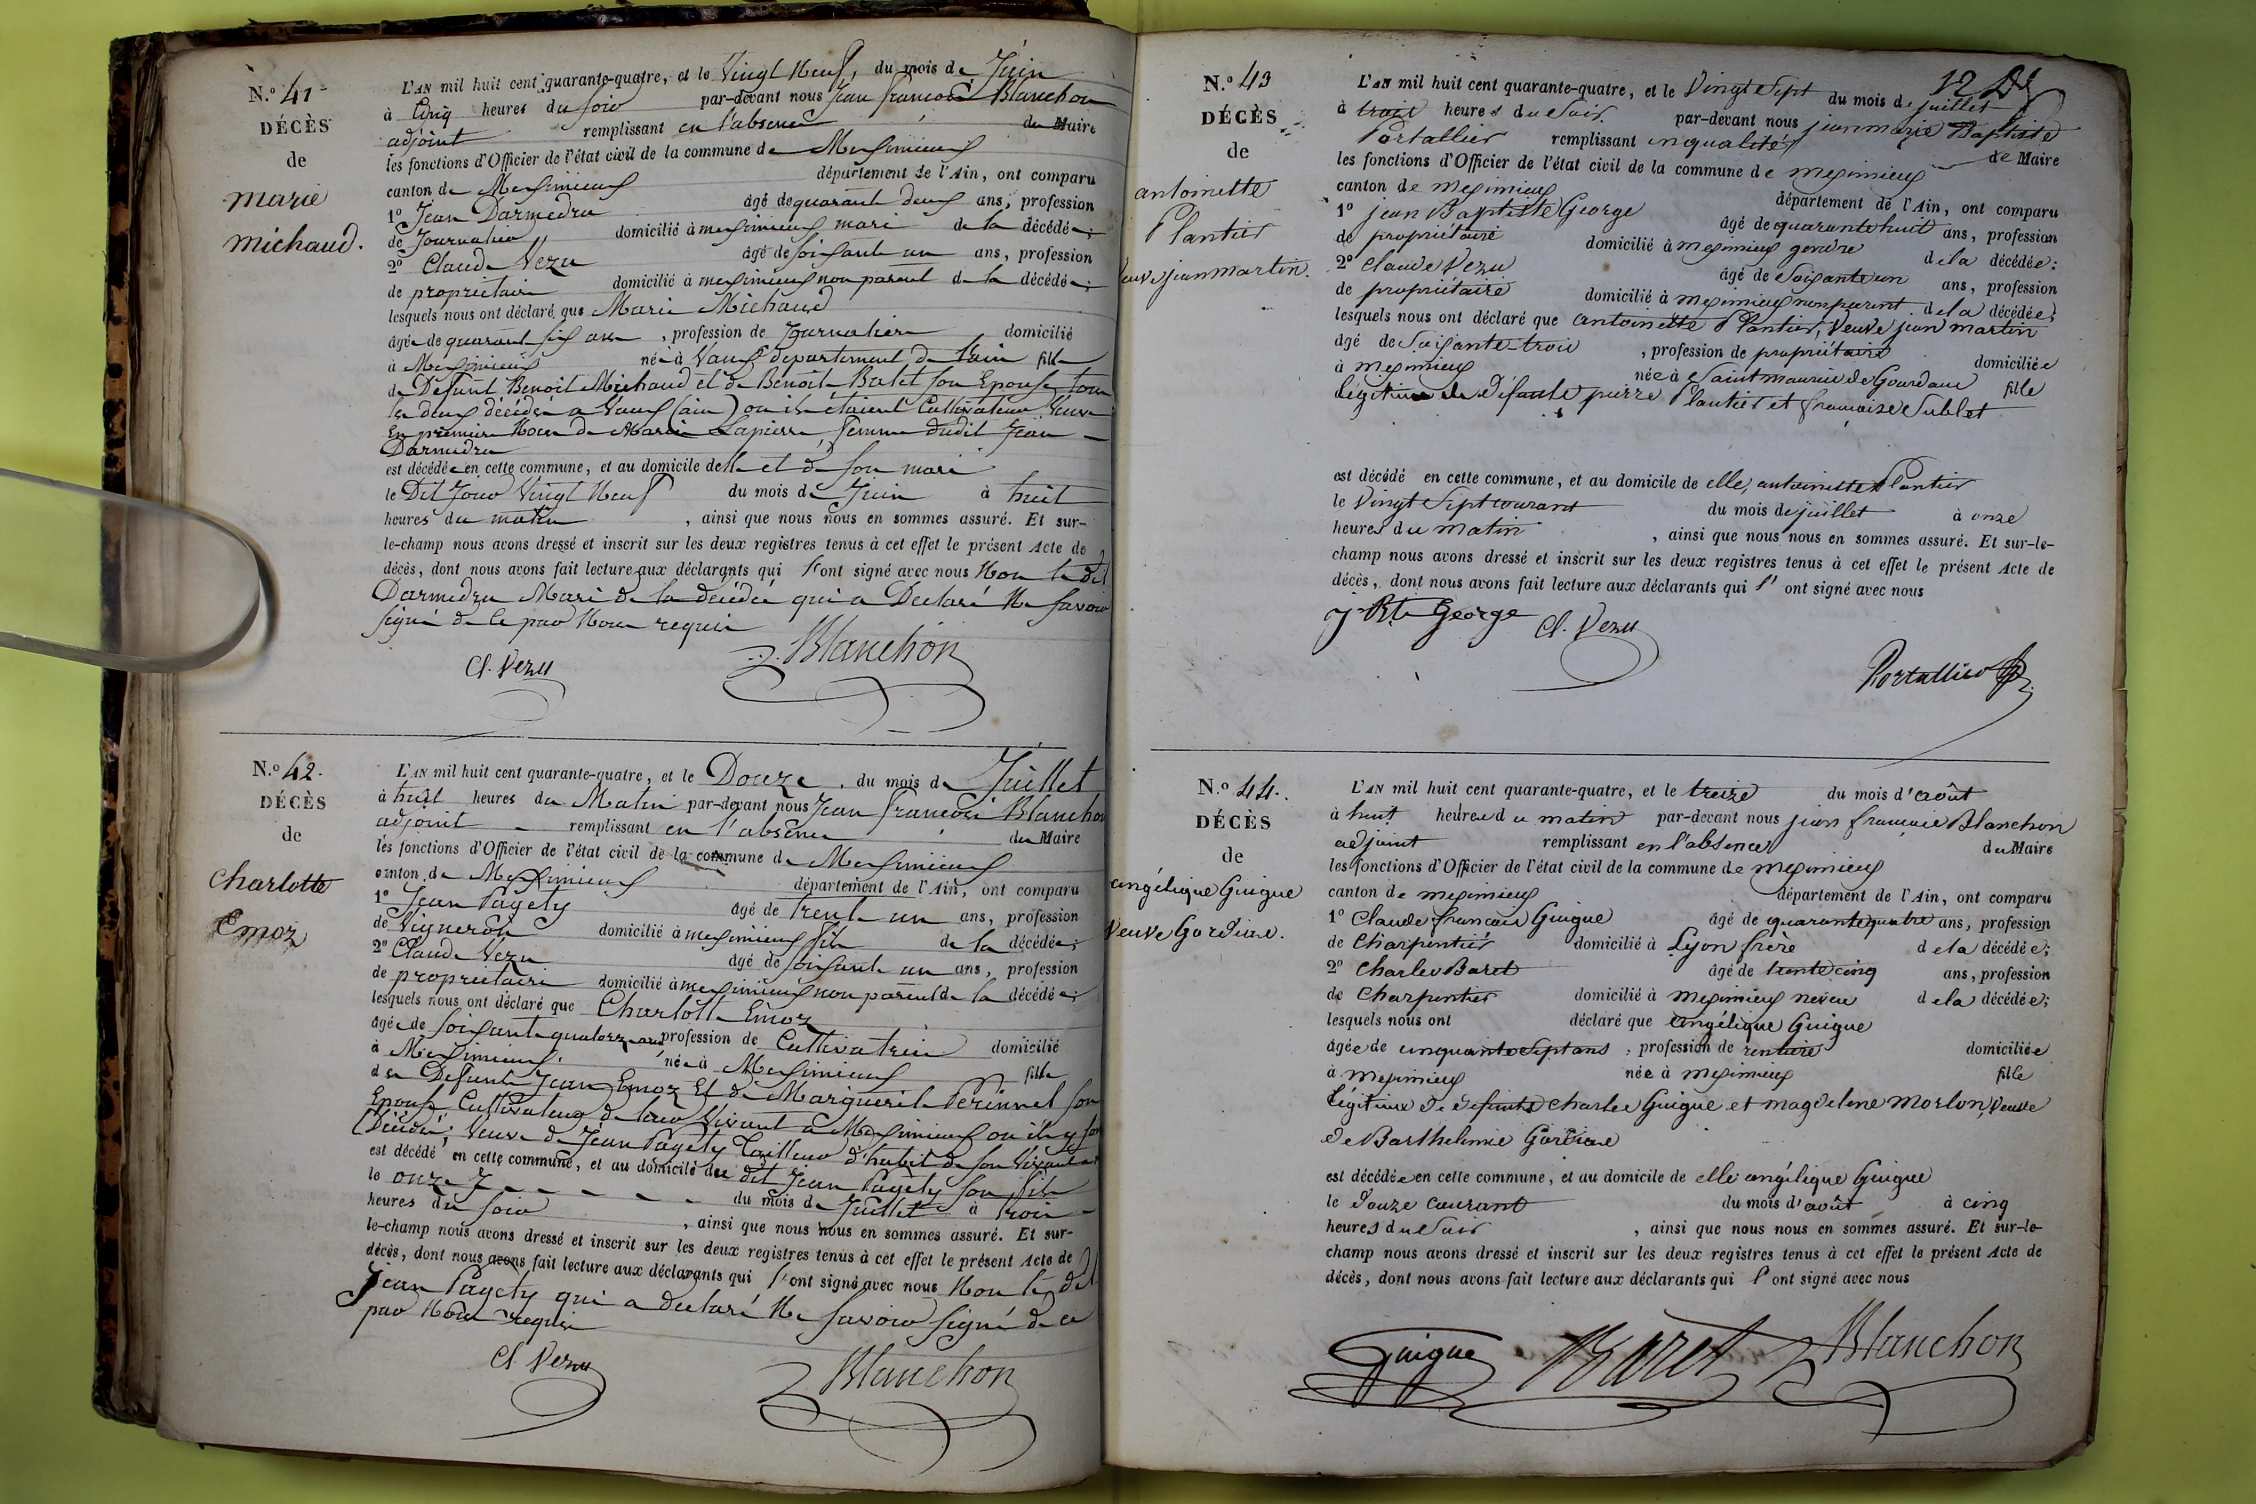 N.º 41
DÉCÈS
de
Marie
Michaud.
L'AN mil huit cent quarante-quatre, et le Vingt Neuf, du mois de Juin
à Cinq heures du Soir par-devant nous Jean François Blanchon
adjoint remplissant en l'absence du Maire
les fonctions d'Officier de l'état civil de la commune de Meximieux
canton de Meximieux département de l'Ain, ont comparu
1º Jean Darmedru âgé de quarant deux ans, profession
de Journalier domicilié à meximieux mari de la décédée;
2º Claude Vezu âgé de soixante un ans, profession
de propriétaire domicilié à meximieux non parent de la décédée;
lesquels nous ont déclaré que Marie Michaud
âgée de quarant six ans, profession de Journalière domicilié
à Meximieux née à Vaux département de l'ain fille
de Defunt Benoit Michaud et de Benoit Balet son Epouse tous
les deux décédés a Vaux (ain) ou ils étaient Cultivateur Veuve
En première Noce de Marie Lapierre, femme dudit Jean
Darmedru
est décédée en cette commune, et au domicile delle et de son mari
le Dit Jour Vingt Neuf du mois de Juin à huit
heures du matin, ainsi que nous nous en sommes assuré. Et sur-
le-champ nous avons dressé et inscrit sur les deux registres tenus à cet effet le présent Acte de
décès, dont nous avons fait lecture aux déclarants qui l'ont signé avec nous Non le dit
Darmedru Mari de la décédée qui a Déclaré Ne Savoir
signé de Ce par Nous requis
Cl. Vezu Blanchon
N.º 42.
DÉCÈS
de
Charlotte
Emoz
L'AN mil huit cent quarante-quatre, et le Douze, du mois de Juillet
à huit heures du Matin par-devant nous Jean François Blanchon
adjoint remplissant en l'absence du Maire
les fonctions d'Officier de l'état civil de la commune de Meximieux
canton de Meximieux département de l'Ain, ont comparu
1º Jean Pagety âgé de Trente un ans, profession
de Vigneron domicilié à meximieux fils de la décédée;
2º Claude Vezu âgé de soixante un ans, profession
de propriétaire domicilié à meximieux non parent de la décédée;
lesquels nous ont déclaré que Charlotte Emoz
âgée de soixante quatorze ans profession de Cultivatrice domicilié
à Meximieux. née à Meximieux fille
des Defunts Jean Emoz Et de Marguerite Perinnet son
Epouse Cultivateur de leur Vivant a Meximieux ou ils y sont
Décédé; Veuve de Jean Pagety Tailleur d'habit de son Vivant
est décédé en cette commune, et au domicile du dit Jean Pagety son fils
le onze du mois de Juillet à trois
heures du soir, ainsi que nous nous en sommes assuré. Et sur-
le-champ nous avons dressé et inscrit sur les deux registres tenus à cet effet le présent Acte de
décès, dont nous avons fait lecture aux déclarants qui l'ont signé avec nous Non le dit
Jean Pagety qui a declaré Ne savoir signé de ce
par Nous requis
Cl Vezu Blanchon
12
N.º 43
DÉCÈS
de
antoinette
Plantier
veuve jean martin.
L'AN mil huit cent quarante-quatre, et le Vingt Sept du mois de juillet
à trois heures du Soir, par-devant nous jean marie Baptiste
Portallier remplissant en qualité de Maire
les fonctions d'Officier de l'état civil de la commune de meximieux
canton de meximieux département de l'Ain, ont comparu
1º jean Baptiste George âgé de quarante huit ans, profession
de propriétaire domicilié à meximieux gendre de la décédée;
2º Claude Vezu âgé de Soixante un ans, profession
de propriétaire domicilié à meximieux non parent de la décédée;
lesquels nous ont déclaré que antoinette Plantier, Veuve jean martin
âgé de Soixante-trois, profession de propriétaire domiciliée
à meximieux née à Saint maurice de Gourdans fille
légitime de Défunts pierre Plantier et françoise Sublet
est décédé en cette commune, et au domicile de elle, antoinette Plantier
le Vingt Sept courant du mois de juillet à onze
heures du matin, ainsi que nous nous en sommes assuré. Et sur-le-
champ nous avons dressé et inscrit sur les deux registres tenus à cet effet le présent Acte de
décès, dont nous avons fait lecture aux déclarants qui l'ont signé avec nous
J Bte George Cl. Vezu
Portallier
N.º 44.
DÉCÈS
de
angélique Guigue
Veuve Gordian.
L'AN mil huit cent quarante-quatre, et le treize du mois d'août
à huit heures du matin par-devant nous jean françois Blanchon
adjoint remplissant en l'absence du Maire
les fonctions d'Officier de l'état civil de la commune de meximieux
canton de meximieux département de l'Ain, ont comparu
1º Claude françois Guigue âgé de quarante quatre ans, profession
de Charpentier domicilié à Lyon frère de la décédée;
2º Charles Baret âgé de trente cinq ans, profession
de Charpentier domicilié à meximieux neveu de la décédée;
lesquels nous ont déclaré que angélique Guigue
âgée de cinquante Sept ans, profession de rentière domiciliée
à meximieux née à meximieux fille
légitime de défunts Charles Guigue et magdelene Morlon, Veuve
de Barthelemie Gordian
est décédée en cette commune, et au domicile de elle angélique Guigue
le Douze Courant du mois d'août à cinq
heures du Soir, ainsi que nous nous en sommes assuré. Et sur-le-
champ nous avons dressé et inscrit sur les deux registres tenus à cet effet le présent Acte de
décès, dont nous avons fait lecture aux déclarants qui l'ont signé avec nous
Guigue Baret Blanchon